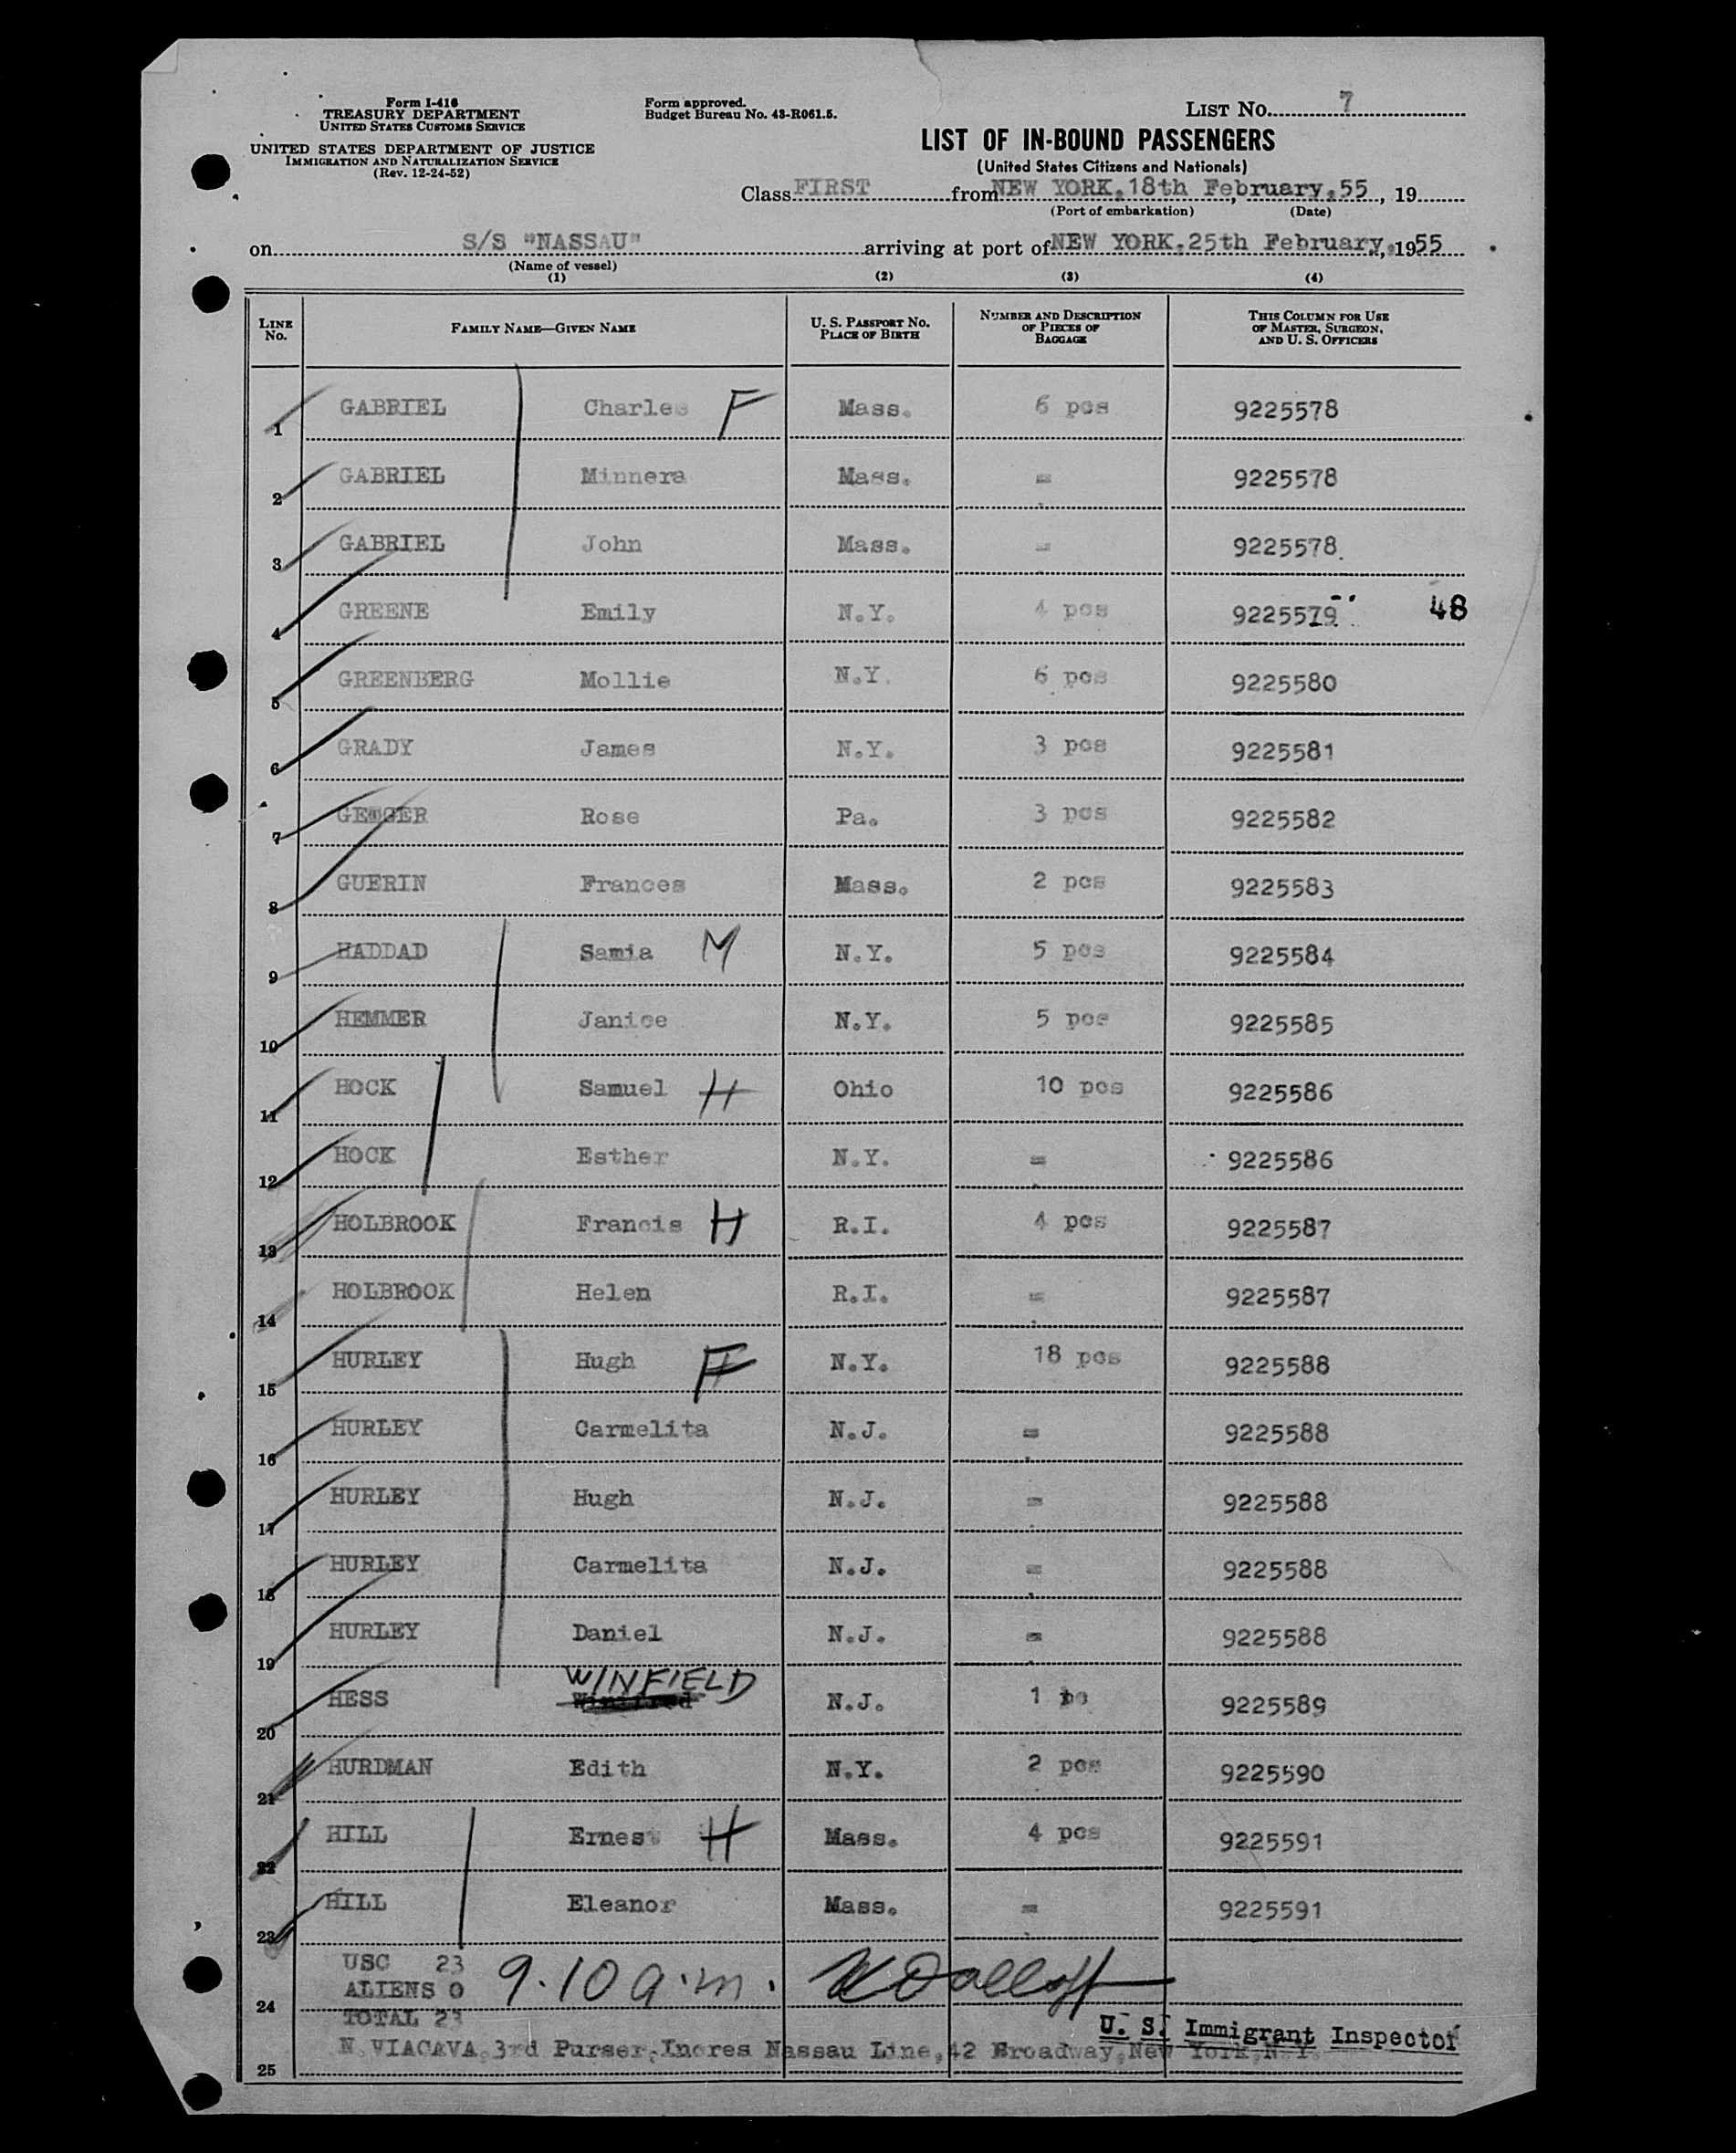 Form I-416
TREASURY DEPARTMENT
UNITED STATES CUSTOMS SERVICE
UNITED STATES DEPARTMENT OF JUSTICE
IMMIGRATION AND NATURALIZATION SERVICE
(Rev. 12-24-52)
Form approved.
Budget Bureau No. 43-R061.5.
LIST NO. 7
LIST OF IN-BOUND PASSENGERS
(United States Citizens and Nationals)
Class FIRST from NEW YORK, 18th February, 55, 19
(Port of embarkation) (Date)
on S/S "NASSAU" arriving at port of NEW YORK, 25th February, 1955
(Name of vessel)
(1) (2) (3) (4)
LINE NO. FAMILY NAME—GIVEN NAME U. S. PASSPORT NO. PLACE OF BIRTH NUMBER AND DESCRIPTION OF PIECES OF BAGGAGE THIS COLUMN FOR USE OF MASTER, SURGEON, AND U. S. OFFICERS
1 GABRIEL Charles F Mass. 6 pcs 9225578
2 GABRIEL Minnera Mass. - 9225578
3 GABRIEL John Mass. - 9225578
4 GREENE Emily N.Y. 4 pcs 9225579 48
5 GREENBERG Mollie N.Y. 6 pcs 9225580
6 GRADY James N.Y. 3 pcs 9225581
7 Rose Pa. 3 pcs 9225582
8 GUERIN Frances Mass. 2 pcs 9225583
9 HADDAD Samia M N.Y. 5 pcs 9225584
10 HEMMER Janice N.Y. 5 pcs 9225585
11 HOCK Samuel H Ohio 10 pcs 9225586
12 HOCK Esther N.Y. - 9225586
13 HOLBROOK Francis H R.I. 4 pcs 9225587
14 HOLBROOK Helen R.I. - 9225587
15 HURLEY Hugh F N.Y. 18 pcs 9225588
16 HURLEY Carmelita N.J. - 9225588
17 HURLEY Hugh N.J. - 9225588
18 HURLEY Carmelita N.J. - 9225588
19 HURLEY Daniel N.J. - 9225588
20 HESS WINFIELD N.J. 1 pc 9225589
21 HURDMAN Edith N.Y. 2 pcs 9225590
22 HILL Ernest H Mass. 4 pcs 9225591
23 HILL Eleanor Mass. - 9225591
USC 23
ALIENS 0 9.10 a.m.
24
TOTAL 23
U. S. Immigrant Inspector
N. VIACAVA, 3rd Purser, Incres Nassau Line, 42 Broadway, New York, N.Y.
25